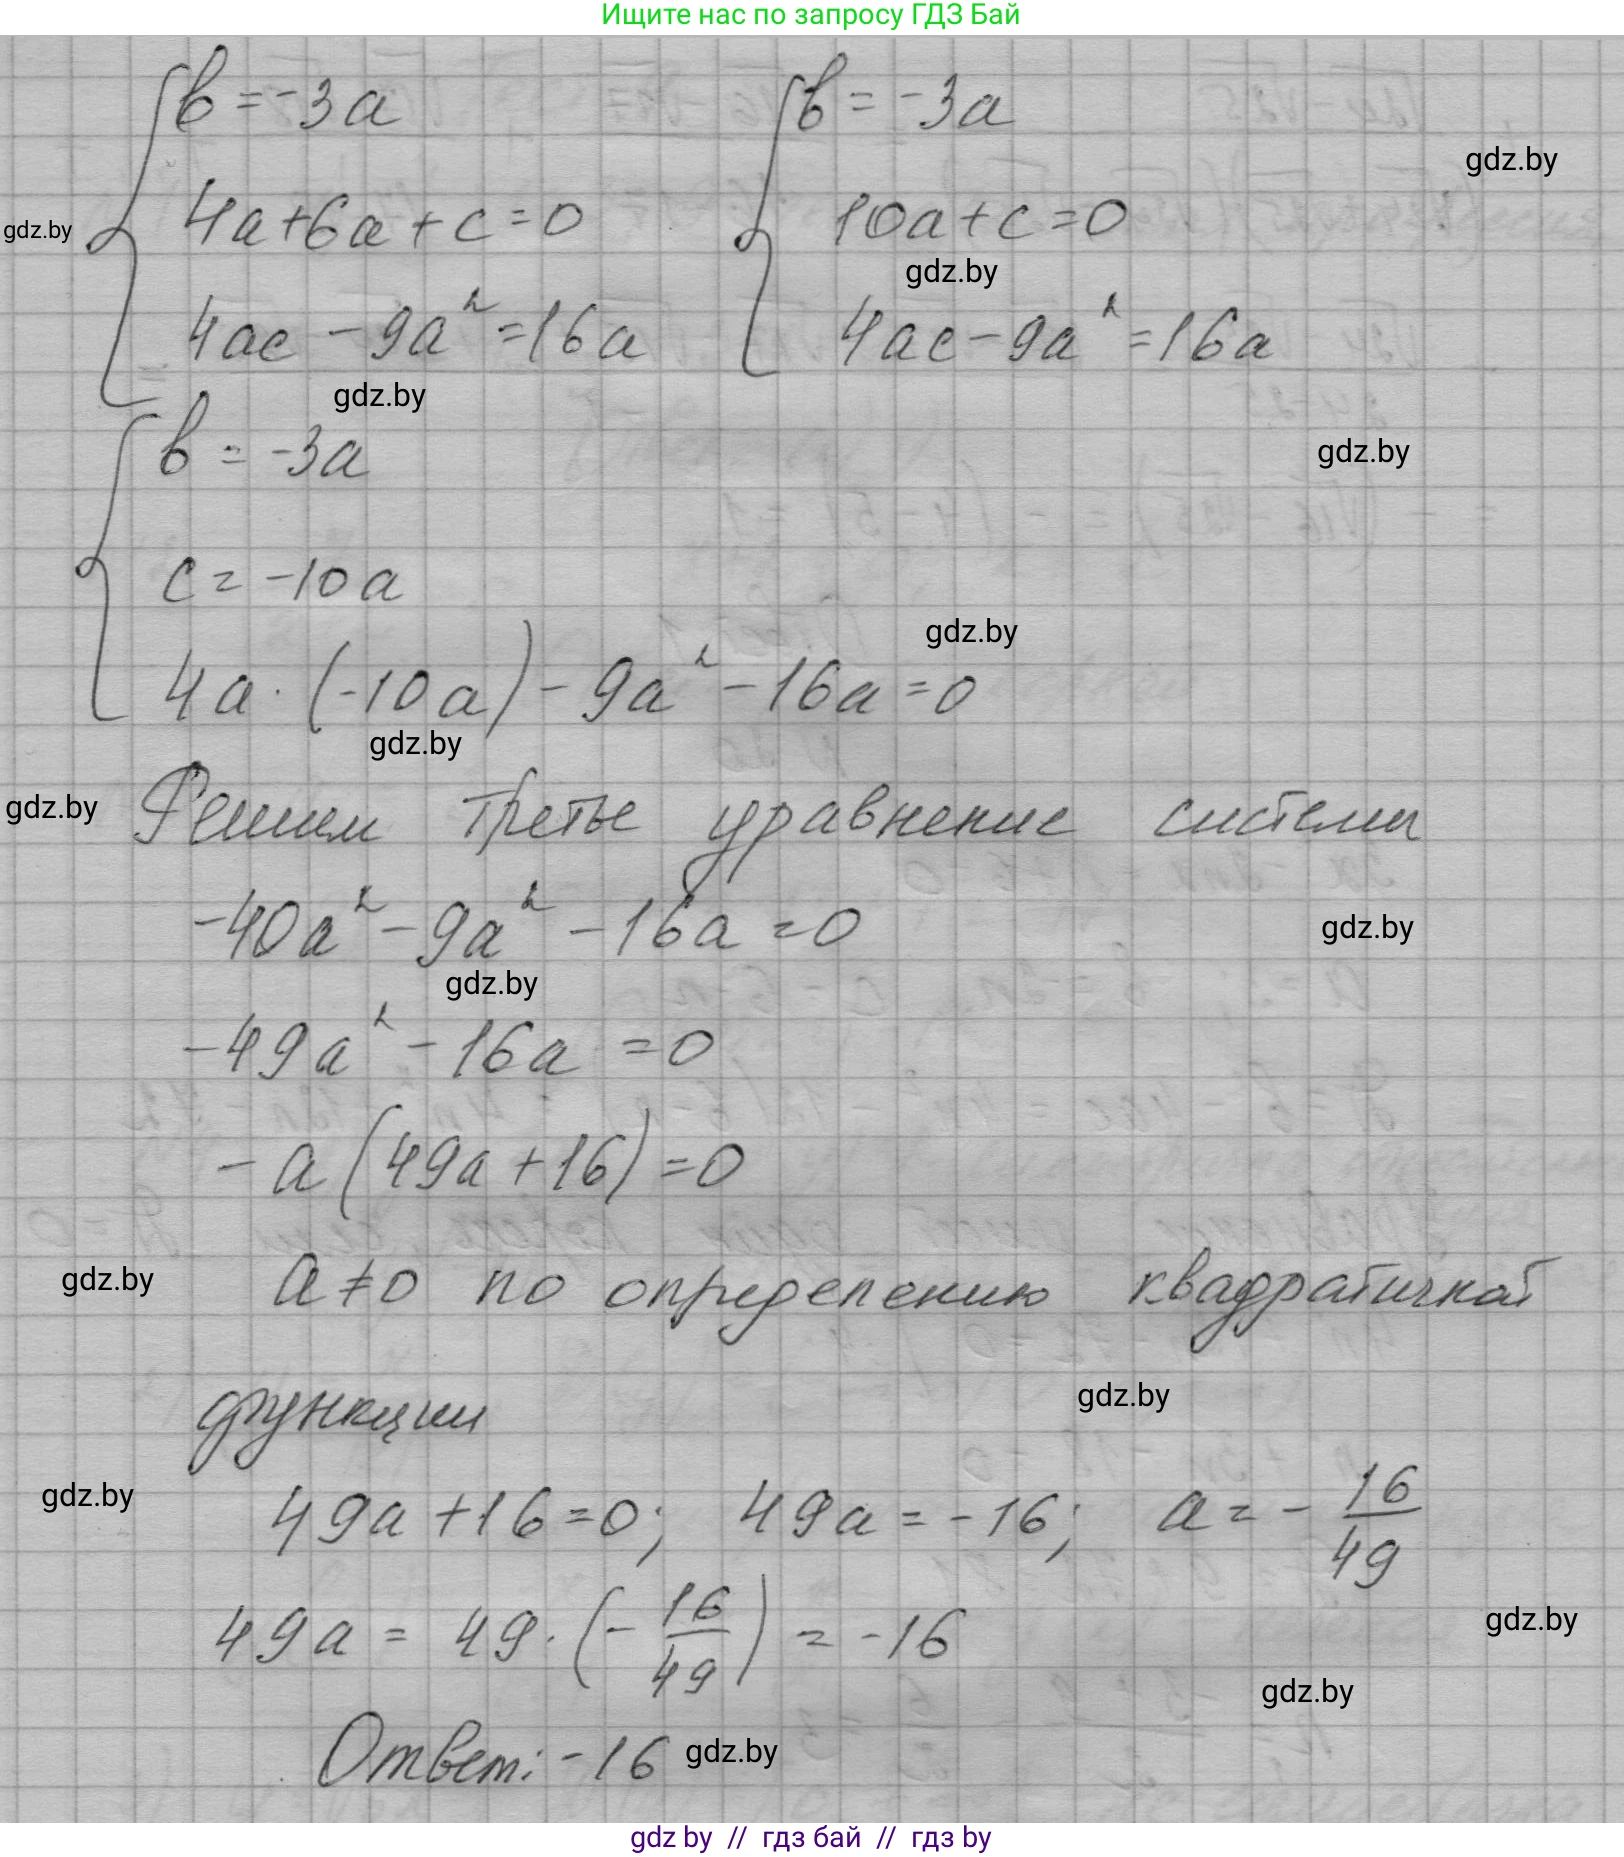 Ищите нас по запросу ГДЗ Бай
b = -3a
4a+6a+c=0
4ac - 9a² = 16a
b = -3a
10a+c=0
4ac - 9a² = 16a
gdz.by
gdz.by
gdz.by
gdz.by
b = -3a
c = -10a
4a · (-10a) - 9a² - 16a = 0
gdz.by
gdz.by
gdz.by
gdz.by
Решим третье уравнение системы
-40a² - 9a² - 16a = 0
gdz.by
gdz.by
-49a² - 16a = 0
-a(49a+16)=0
gdz.by
a≠0 по определению квадратичной
функции
gdz.by
gdz.by
49a+16=0; 49a = -16; a = -16/49
49a = 49·(-16/49) = -16
gdz.by
gdz.by
Ответ: -16
gdz.by
gdz by // гдз бай // гдз by